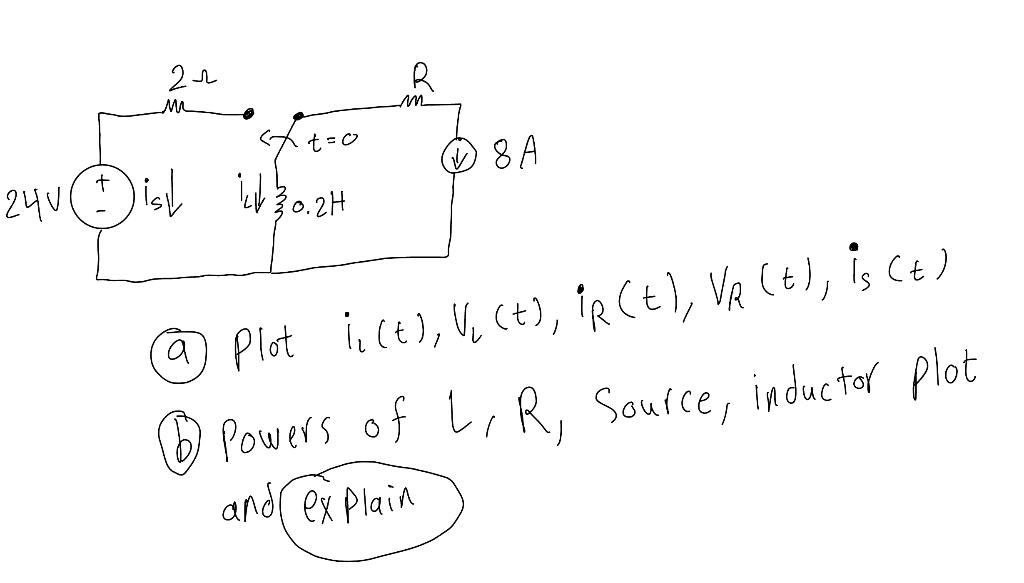 2Ω
R
t=0
8A
24V
+
-
is↓
iL↓
0.2H
(a) Plot iL(t), VL(t), iR(t), VR(t), is(t)
(b) Powers of L, R, Source, inductor plot
and explain